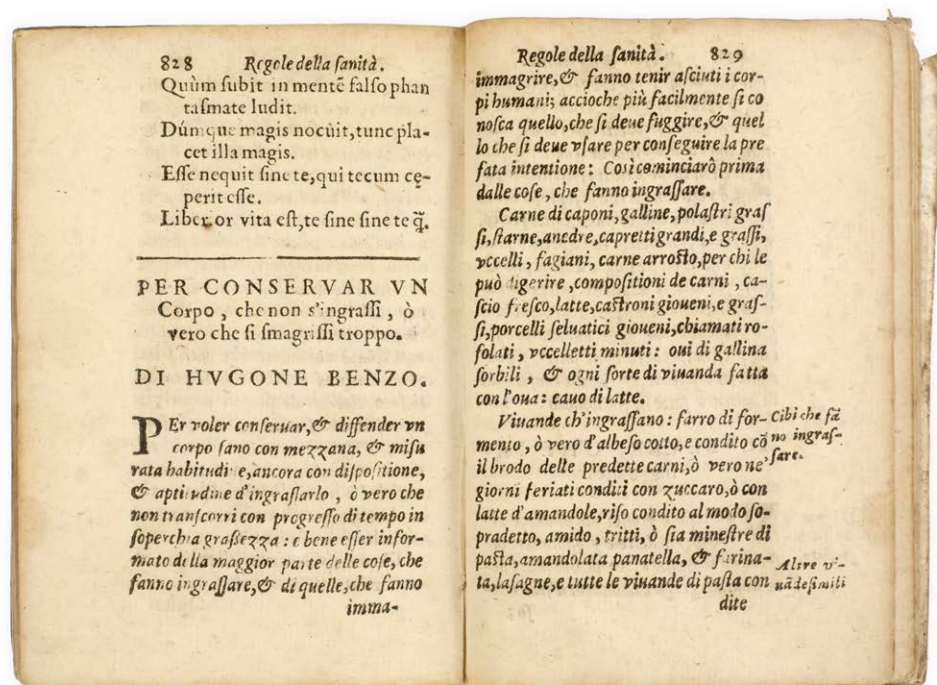 828 Regole della ſanità.
Quùm ſubit in mentẽ falſo phan
taſmate ludit.
Dúmque magis nocùit, tunc pla-
cet illa magis.
Eſſe nequit ſine te, qui tecum cę-
perit eſſe.
Liber, or vita eſt, te ſine ſine te q̃.
PER CONSERVAR VN
Corpo, che non s'ingraſſi, ò
vero che ſi ſmagriſſi troppo.
DI HVGONE BENZO.
PEr voler conſeruar, & diffender vn
corpo ſano con mezzana, & miſu
rata habitudine, ancora con diſpoſitione,
& aptitudine d'ingraſſarlo, ò vero che
non tranſcorri con progreſſo di tempo in
ſoperchia graßezza: è bene eſſer infor-
mato della maggior parte delle coſe, che
fanno ingraſſare, & di quelle, che fanno
imma-
Regole della ſanità. 829
immagrire, & fanno tenir aſciuti i cor-
pi humani; accioche più facilmente ſi co
noſca quello, che ſi deue fuggire, & quel
lo che ſi deue vſare per conſeguire la pre
fata intentione: Così cominciarò prima
dalle coſe, che fanno ingraſſare.
Carne di caponi, galline, polaſtri graſ
ſi, ſtarne, anedre, capretti grandi, e graſſi,
vccelli, fagiani, carne arroſto, per chi le
può digerire, compoſitioni de carni, ca-
ſcio freſco, latte, caſtroni gioueni, e graſ-
ſi, porcelli ſeluatici gioueni, chiamati ro-
ſolati, vccelletti minuti: oui di gallina
ſorbili, & ogni ſorte di viuanda fatta
con l'oua: cauo di latte.
Viuande ch'ingraſſano: farro di for-
mento, ò vero d'albeſo cotto, e condito cõ
il brodo delle predette carni, ò vero ne'
giorni feriati conditi con zuccaro, ò con
latte d'amandole, riſo condito al modo ſo-
pradetto, amido, tritti, ò ſia mineſtre di
paſta, amandolata panatella, & farina-
ta, laſagne, e tutte le viuande di paſta con
dite
Cibi che fã
no ingraſ-
ſare.
Altre vi-
uãde ſimili